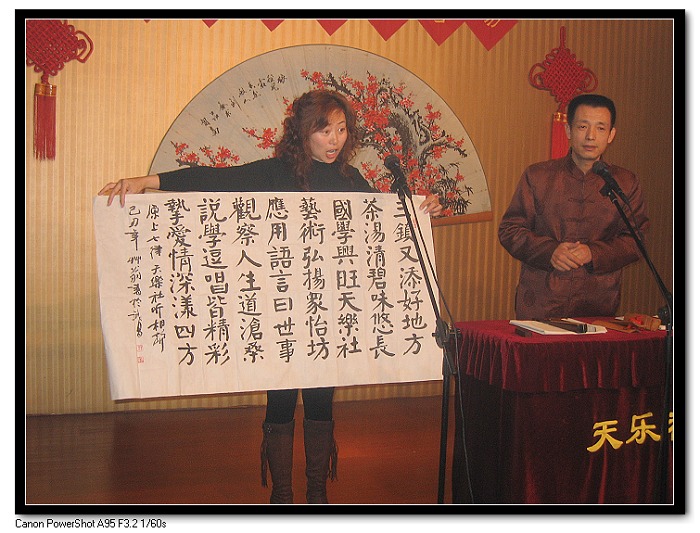 三鎮又添好地方
茶湯清碧味悠長
國學興旺天樂社
藝術弘揚眾怡坊
應用語言曰世事
觀察人生道滄桑
說學逗唱皆精彩
摯愛情深漾四方
七律 天樂社听相
己丑年
天乐
Canon PowerShot A95 F3.2 1/60s